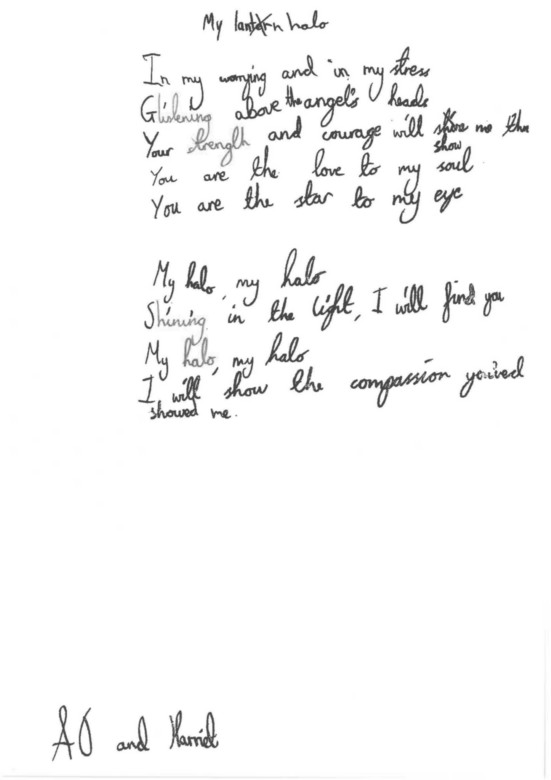 My halo
In my worrying and in my stress
Glistening above the angel's heads
Your strength and courage will show me the
You are the love to my soul
You are the star to my eye
My halo, my halo
Shining in the light, I will find you
My halo, my halo
I will show the compassion you'ved
showed me.
AO and Harriet